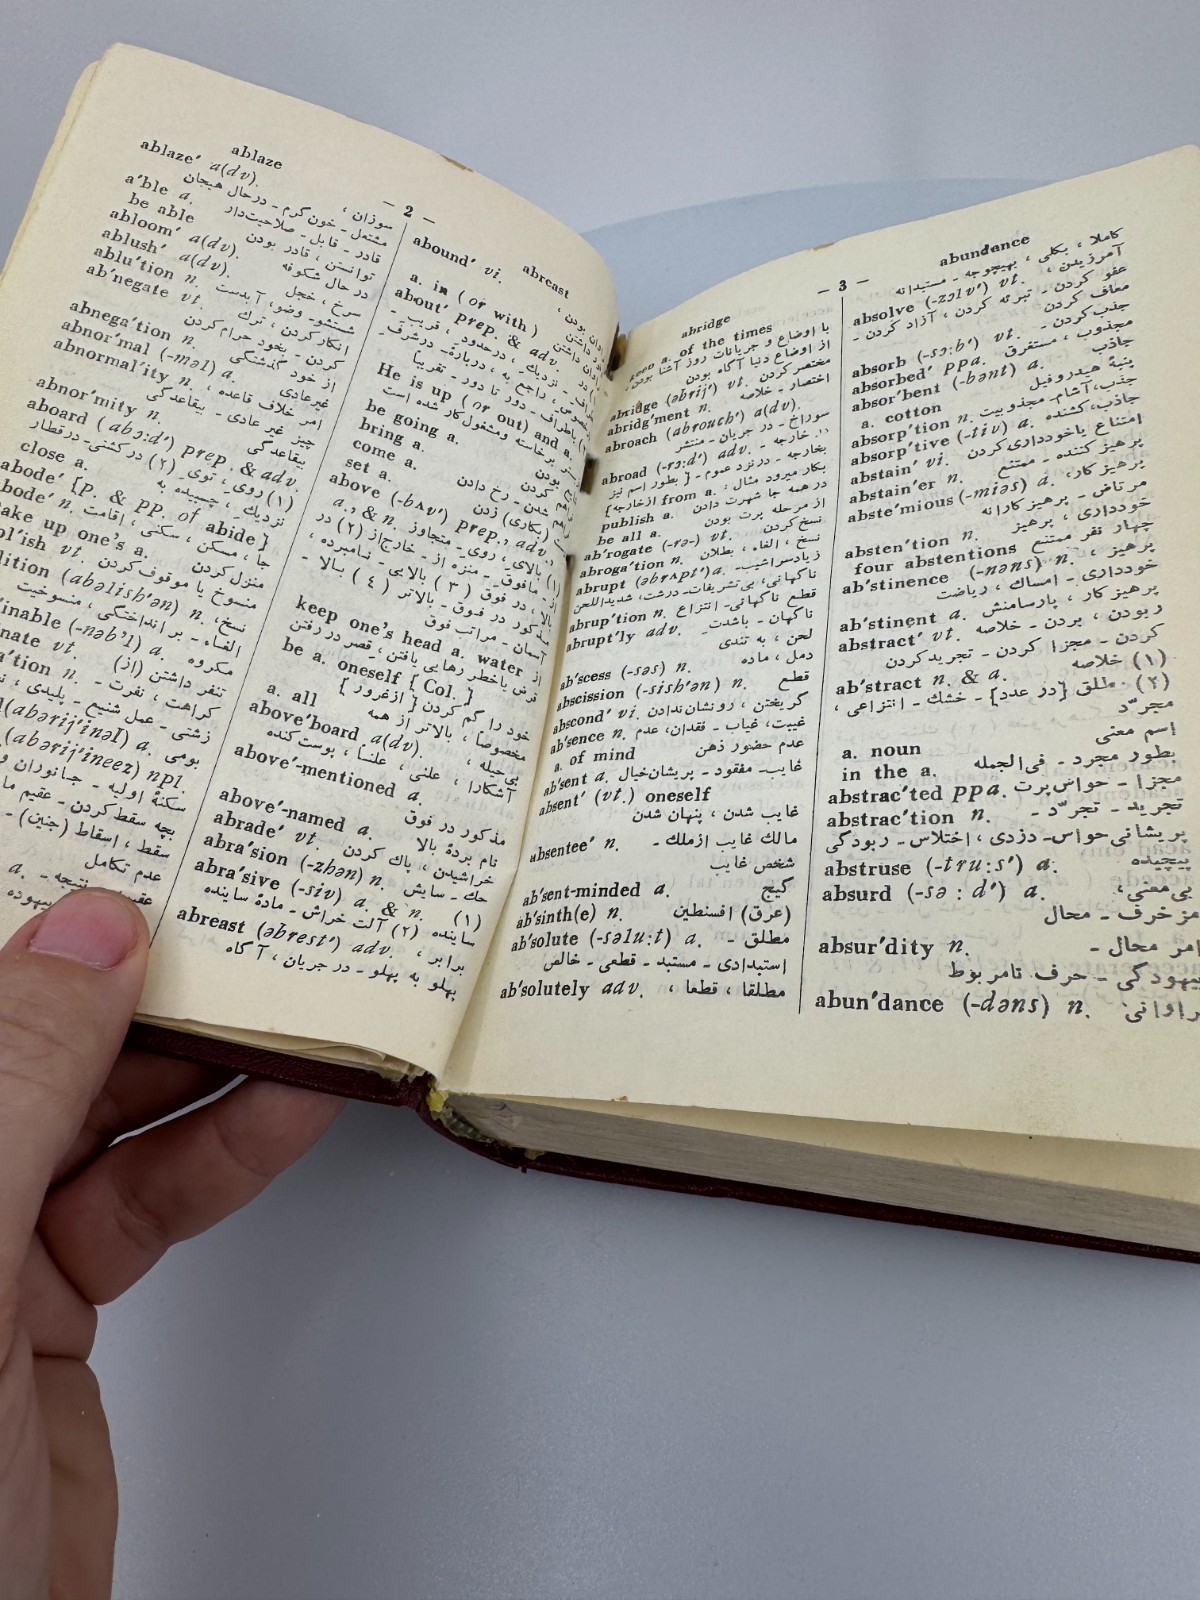 ablaze
— 2 —
abreast
ablaze′ a(dv).
سوزان ،
مشتعل - خون گرم - در حال هیجان
a′ble a.
قادر - قابل - صلاحیت‌دار
be able
توانستن ، قادر بودن
abloom′ a(dv).
در حال شکوفه
ablush′ a(dv).
سرخ ، خجل
ablu′tion n.
شستشو - وضو، آبدست
ab′negate vt.
انکار کردن ، ترك
کردن - بخود حرام کردن
abnega′tion n.
از خود گذشتگی
abnor′mal (-məl) a.
غیرعادی
abnormal′ity n.
امر خلاف قاعده ،
چیز غیر عادی - بیقاعدگی
abnor′mity n.
بیقاعدگی
aboard (abɔ:d′) prep. & adv.
(۱) روی ، توی (۲) در کشتی - در قطار
close a.
نزدیك ، چسبیده به
abode′ {p. & pp. of abide}
abode′ n.
جا ، مسکن ، سکنی ، اقامت
make up one's a.
منزل کردن
ol′ish vt.
منسوخ یا موقوف کردن
lition (abəlish′ən) n.
نسخ،
الغاء - براندا ختگی ، منسوخیت
inable (-nəb′l) a.
مکروه
nate vt.
تنفر داشتن (از)
a′tion n.
کراهت ، نفرت -
زشتی - عمل شنیع - پلیدی ،
l(abərij′inəl) a.
بومی
(abərij′ineez) npl.
سکنهٔ اولیه - جانوران و
بچه سقط کردن - عقیم ما
سقط ، اسقاط (جنین) -
عدم تکامل
a.
abound′ vi.
a. in (or with)
about′ prep. & adv
He is up (or out) and a.
بستر برخاسته و مشغول کار شده است
be going a.
bring a.
come a.
set a.
above (-bʌv′) prep., adv,
a., & n.
keep one's head a. water
قرض یا خطر رهایی یافتن ، قصر در رفتن
be a. oneself {Col.}
خود را گم کردن {از غرور}
a. all
مخصوصاً ، بالاتر از همه
above′board a(dv).
بی‌حیله ،
آشکارا ، علنی ، علناً ، پوست کنده
above′-mentioned a.
مذکور در فوق
above′-named a.
نام بردهٔ بالا
abrade′ vt.
خراشیدن ، پاك کردن
abra′sion (-zhən) n.
حك - سایش
abra′sive (-siv) a. & n.
(۱)
ساینده (۲) آلت خراش - مادهٔ ساینده
abreast (əbrest′) adv.
برابر ،
پهلو به پهلو - در جریان ، آگاه
abridge
— 3 —
abundance
keep a. of the times
با اوضاع و جریانات روز آشنا بودن،
از اوضاع دنیا آگاه بودن
abridge (əbrij′) vt.
مختصر کردن
abridg′ment n.
اختصار - خلاصه
abroach (əbrouch′) a(dv).
سوراخ - در جریان - منتشر
abroad (-rɔ:d′) adv.
خارجه -
بخارجه - در نزد عموم - {بطور اسم نیز
بکار میرود مثال : from a. از خارجه}
publish a.
در همه جا شهرت دادن
be all a.
از مرحله پرت بودن
ab′rogate (-rə-) vt.
نسخ کردن
abroga′tion n.
نسخ ، الغاء ، بطلان
abrupt (əbrʌpt′) a.
زیاد سراشیب -
ناگهانی، بی تشریفات - درشت، شدیداللحن
abrup′tion n.
قطع ناگهانی - انتزاع
abrupt′ly adv.
ناگهان - باشدت -
لحن ، به تندی
ab′scess (-səs) n.
دمل ، ماده
abscission (-sish′ən) n.
قطع
abscond′ vi.
گریختن ، رو نشان ندادن
ab′sence n.
غیبت، غیاب - فقدان، عدم
a. of mind
عدم حضور ذهن
ab′sent a.
غایب - مفقود - پریشان‌خیال
absent′ (vt.) oneself
غایب شدن ، پنهان شدن
absentee′ n.
مالك غایب از ملك -
شخص غایب
ab′sent-minded a.
گیج
ab′sinth(e) n.
(عرق) افسنطین
ab′solute (-səlu:t) a.
مطلق -
استبدادی - مستبد - قطعی - خالص
ab′solutely adv.
مطلقا ، قطعا ،
کاملا ، بکلی ، بهیچوجه - مستبدانه
absolve (-zɔlv′) vt.
آمرزیدن،
عفو کردن - تبرئه کردن ، آزاد کردن -
معاف کردن
absorb (-sɔ:b′) vt.
جذب کردن -
absorbed′ ppa.
مجذوب ، مستغرق
absor′bent (-bənt) a.
جاذب
a. cotton
پنبهٔ هیدروفیل
absorp′tion n.
جذب، آشام، مجذوبیت
absorp′tive (-tiv) a.
جاذب، کشنده
abstain′ vi.
امتناع یا خودداری کردن
abstain′er n.
پرهیز کننده - ممتنع
abste′mious (-miəs) a.
پرهیز کار،
مرتاض - پرهیز کارانه
absten′tion n.
خودداری ، پرهیز
four abstentions
چهار نفر ممتنع
ab′stinence (-nəns) n.
پرهیز ،
خودداری - امساك ، ریاضت
ab′stinent a.
پرهیز کار ، پارسامنش
abstract′ vt.
ربودن ، بردن - خلاصه
کردن - مجزا کردن - تجرید کردن
ab′stract n. & a.
(۱) خلاصه
(۲) مطلق {در عدد} - خشك - انتزاعی ،
مجرّد
a. noun
اسم معنی
in the a.
بطور مجرد - فی‌الجمله
abstrac′ted ppa.
مجزا - حواس‌پرت
abstrac′tion n.
تجرید - تجرّد -
پریشانی حواس - دزدی ، اختلاس - ربودگی
abstruse (-tru:s′) a.
پیچیده
absurd (-sə:d′) a.
بی‌معنی،
مزخرف - محال
absur′dity n.
امر محال -
بیهودگی - حرف نامربوط
abun′dance (-dəns) n.
فراوانی